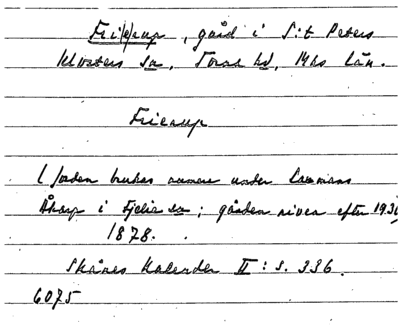 Fri(e)arp, gård i S:t Peters
Klosters sn, Torna hd, Mhs län.
Friearp
( Jorden brukas numera under Laxmans
Åkarp i Fjelie sn; gården riven efter 193
1878.
Skånes Kalender II: s. 336.
6075